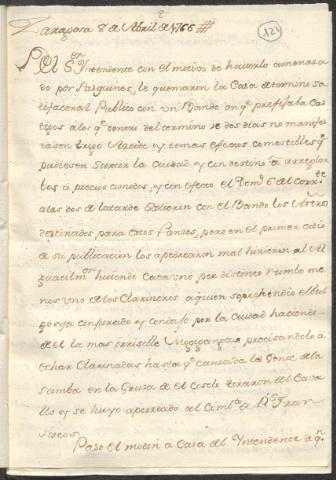 Zaragoza 8 de Abril de 1766
121
El Sr. Intendente con el motivo de haverlo amenaza
do por Pasquines, le quemaren la Casa determino sa
tisfacer al Publico con un Bando en qe. prefijaba Cas
tigos a los qe. dentro del termino de dos dias no manifes
tasen trigo Aceite y demas efectos comestibles qe.
pudiesen surtir la Ciudad y con destino a arreglar
los a precios comodos, y con efecto el Domo. 6 del corrte.
a las dos de la tarde salieron con el Bando los
destinados para estos Panses, pero en el primer citio
de su publicacion los apedrearon mal hirieron al Al
guacil mor. huiendo cada uno por distinto rumbo me
nos uno de los Clarineros a quien soprehendio el bul
go ya conjurado y condujo por la Ciudad haciendo
de el la mas irrisible precisandolo a
echar Clarinadas hasta qe. cansada la Gente de la
Samba en la Cruza de el Coso le tiraron del Cava
llo y se huyo aporreado al Combto. de Sn. Fran
cisco.
Paso el motin a Casa del Intendente a qn.